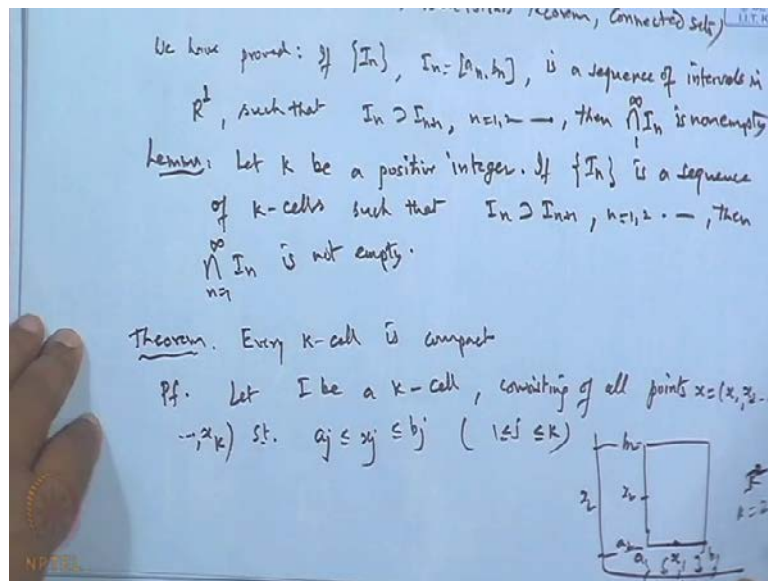 Theorem, Connected sets,
I.I.T. K
We have proved: If {In}, In = [an, bn], is a sequence of intervals in
R¹, such that In ⊃ In+1, n=1,2 —, then ∞∩1 In is nonempty
Lemma: Let K be a positive integer. If {In} is a sequence
of K-cells such that In ⊃ In+1, n=1,2 . —, then
∞∩n=1 In is not empty.
Theorem. Every K-cell is compact
Pf. Let I be a K-cell, consisting of all points x=(x1, x2 -
--, xK) st. aj ≤ xj ≤ bj ( 1≤j ≤K)
b2
x2 x2 R²
k=2
a2
a1 x1 b1
NPTEL